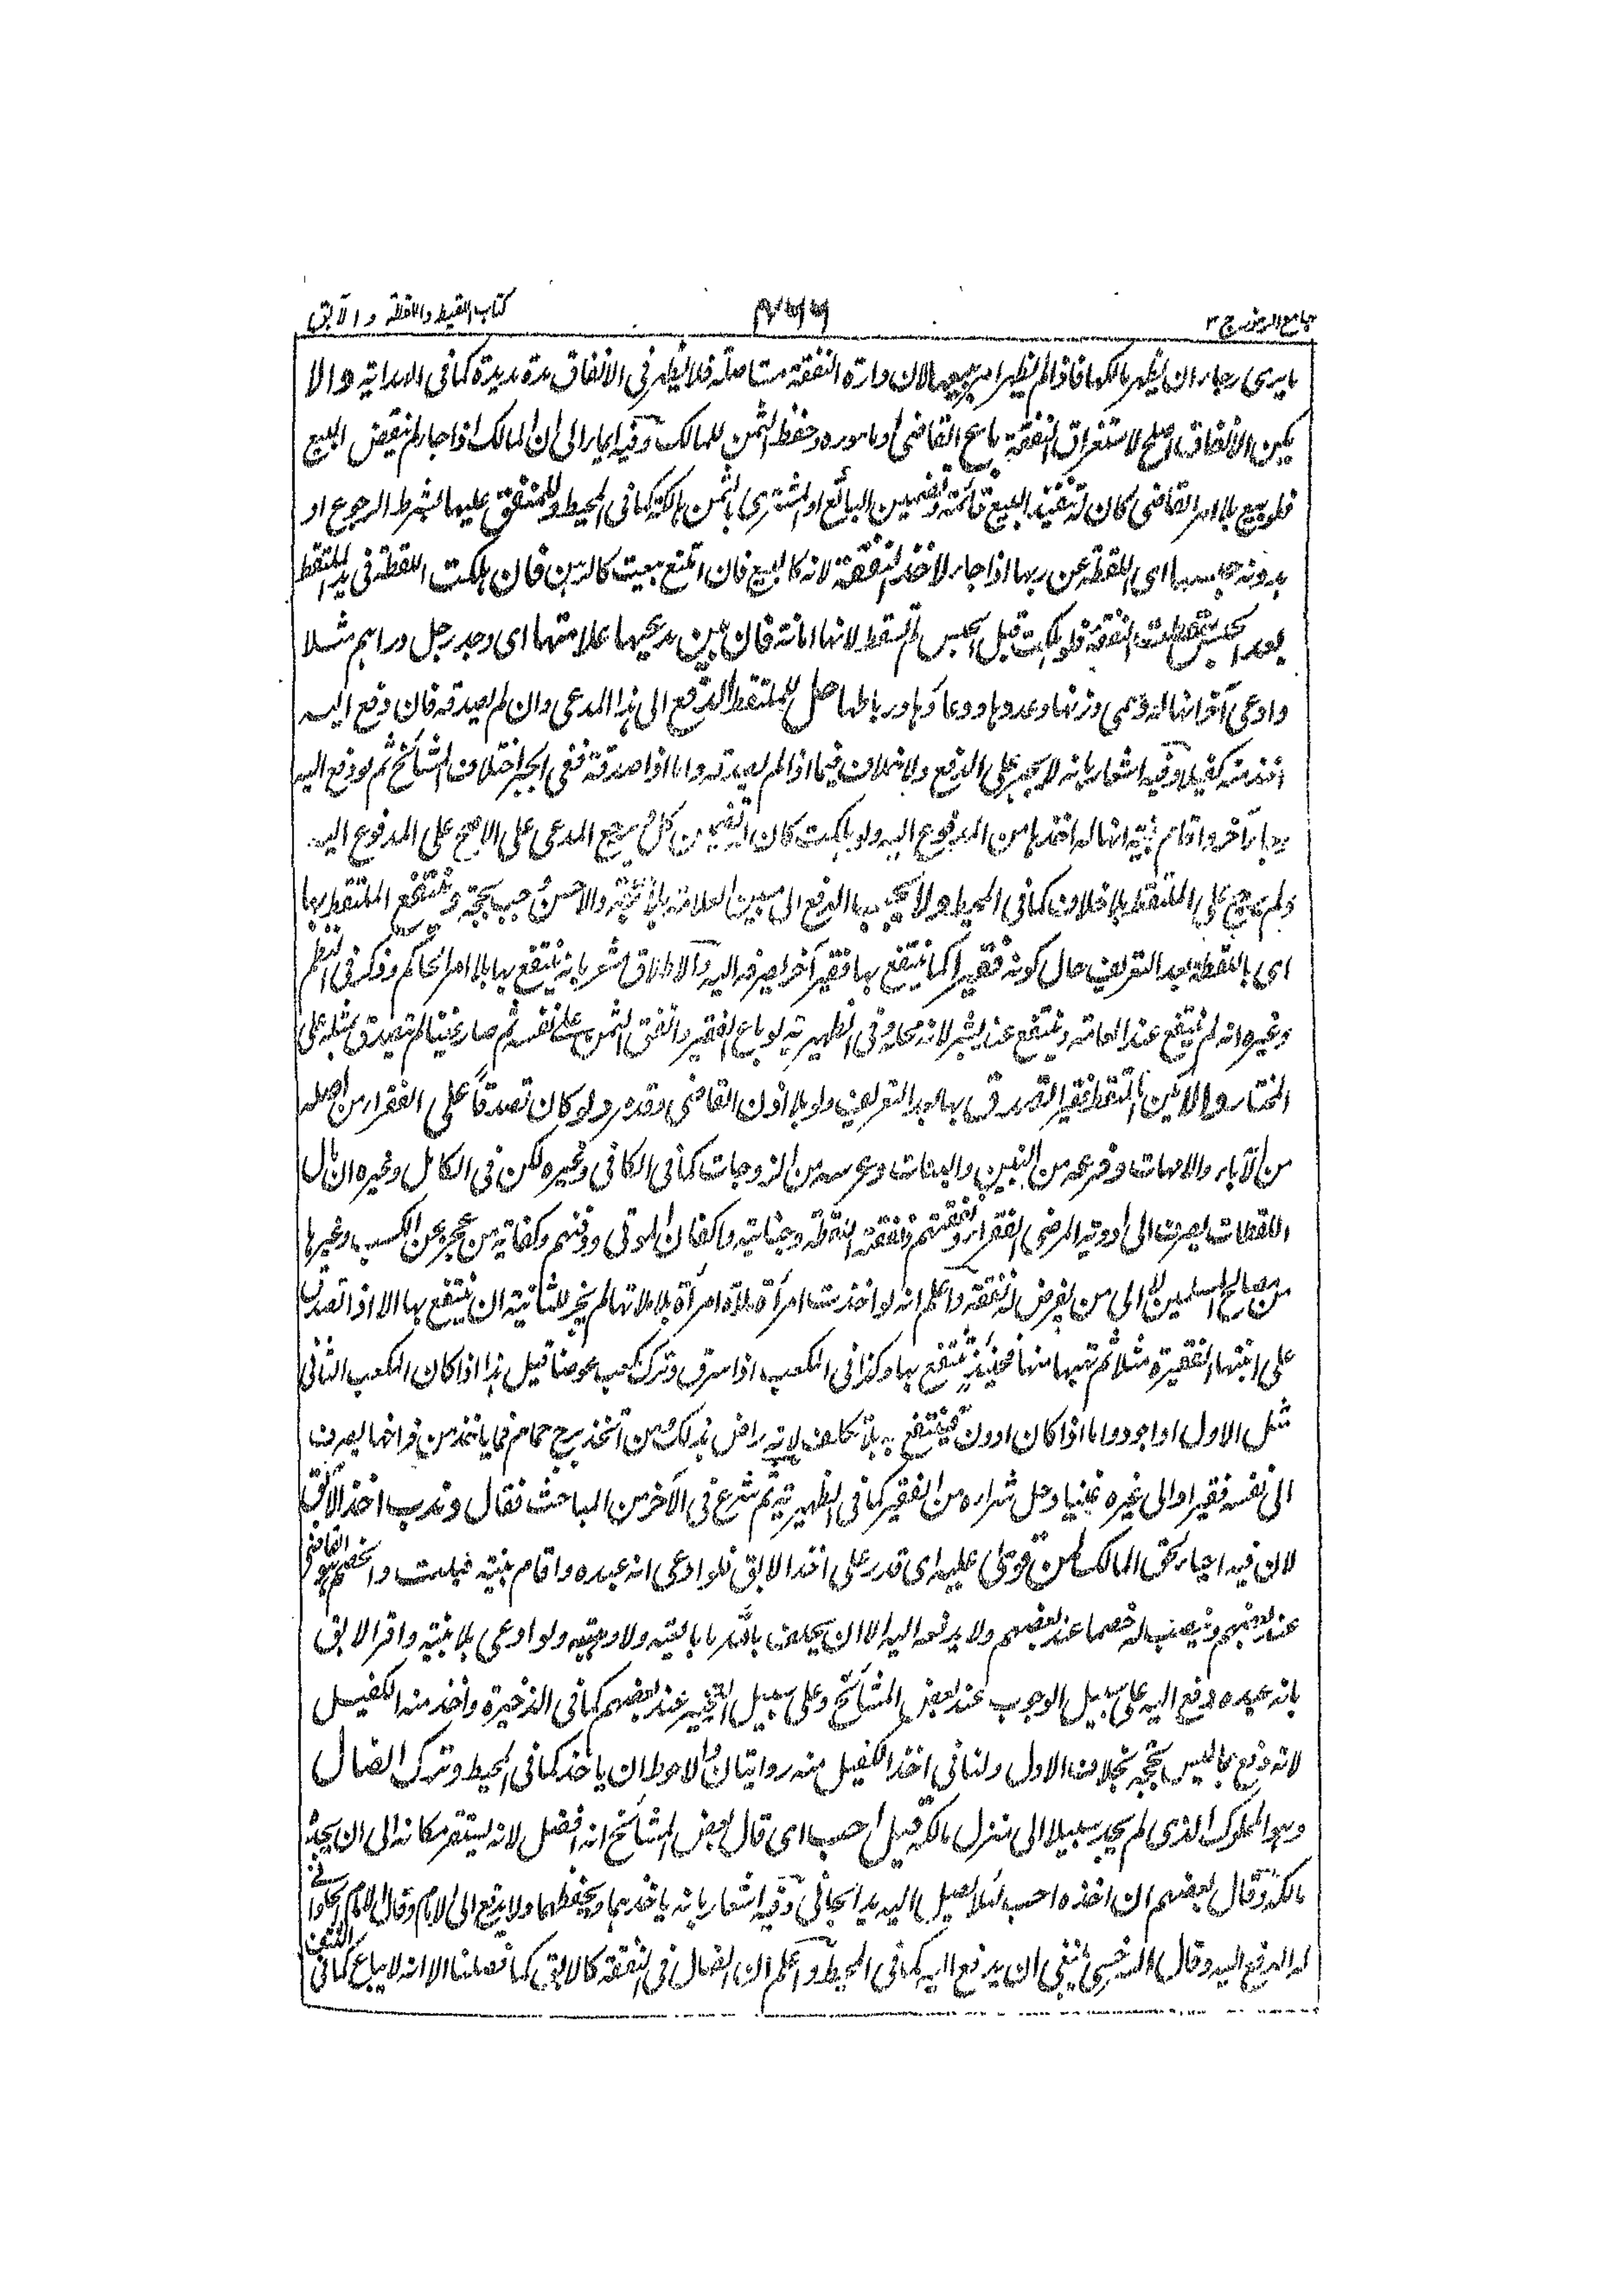 جامع الرموز ج ٣
كتاب اللقيط واللقطة والآبق
ما يرى رجاء ان يظهر مالكها فاذا لم يظهر امر ببيعها لان دارة النفقة مستاصلة فلا نظر في الانفاق مدة مديدة كما في الهداية والا
يكن الانفاق اصلح لاستغراق النفقة باع القاضي او ماموره وحفظ الثمن للمالك وفيه ايماء الى ان المالك اذا جاء لم ينقض البيع
فلو بيع بلا امر القاضي كان له تنفيذ البيع قائمة وتضمين البائع او المشتري بالثمن هالكة كما في المحيط وللمنفق عليها بشرط الرجوع او
بدونه حبسها اى اللقطة عن ربها اذا جاء لاخذ نفقته لانه كالبيع فان امتنع بيعت كالرهن فان هلكت اللقطة في يد الملتقط
بعد الحبس سقطت النفقة فلو هلكت قبل الحبس لم تسقط لانها امانة فان بين مدعيها علامتها اى وجد رجل دراهم مثلا
وادعى آخر انها له وسمى وزنها وعددها ووعاءها ورباطها حل للملتقط الدفع الى هذا المدعى وان لم يصدقه فان دفع اليه
اخذ منه كفيلا وفيه اشعار بانه لا يجبر على الدفع ولا خلاف فيما اذا لم يصدقه واما اذا صدقه ففى الجبر اختلاف المشائخ ثم لو دفع اليه
وجاء آخر واقام بينة انها له اخذها من المدفوع اليه ولو هلكت كان له تضمين كل ثم يرجع المدعى على الاصح على المدفوع اليه
ولم يرجع على الملتقط بلا خلاف كما في المحيط ولا يجب الدفع الى مبين العلامة بلا حجة والاحسن يجب بحجة وينتفع الملتقط بها
اى باللقطة بعد التعريف حال كونه فقيرا كما ينتفع بها فقير آخر يصرفه اليه والاطلاق مشعر بانه ينتفع بها بلا امر الحاكم وذكر في النظم
وغيره انه لم ينتفع عند العامة وينتفع عند بشر لانه محله وفى الظهيرية لو باع الفقير وانفق الثمن على نفسه ثم صار غنيا لم يتصدق بمثله على
المختار والا يكن الملتقط فقيرا تصدق بها بعد التعريف ولو بلا اذن القاضي وقدره ولو كان تصدقا على الفقراء من اصله
من الآباء والامهات وفرعه من البنين والبنات وعرسه من الزوجات كما في الكافي وغيره لكن في الكامل وغيره ان مال
اللقطات يصرف الى ادوية المرضى الفقراء ونفقتهم ونفقة اللقيط وجنايته واكفان الموتى ودفنهم وكفاية من عجز عن الكسب وغيرها
من مصالح المسلمين لا الى من يفرض له نفقة واعلم انه لو اخذت امرأة ملاءة امرأة بلا ملاءتها لم يجز للثانية ان ينتفع بها الا اذا تصدق
على ابنتها الفقيرة مثلا ثم تهبها منها فحينئذ ينتفع بها وكذا في المكعب اذا سرق وترك مكعب عوضا قيل هذا اذا كان المكعب الثاني
مثل الاول او اجود واما اذا كان ادون فينتفع به بلا تكلف لانه راض بذلك ومن اتخذ برج حمام فما ياخذ من فراخها يصرف
الى نفسه فقيرا او الى غيره غنيا وحل شراءه من الفقير كما في الظهيرية ثم شرع في الآخر من المباحث فقال وندب اخذ الآبق
لان فيه احياء حق المالك لمن قوى عليه اى قدر على اخذ الابق فلو ادعى انه عبده واقام بينة قبلت والخصم هو القاضي
عند بعضهم وينصب له خصما عند بعضهم ولا يدفعه اليه الا ان يحلف بالله ما بايعته ولا وهبته ولو ادعى بلا بينة واقر الابق
بانه عبده دفع اليه على سبيل الوجوب عند بعض المشائخ وعلى سبيل التخيير عند بعضهم كما في الذخيرة واخذ منه الكفيل
لانه دفع بما ليس بحجة بخلاف الاول ولنا في اخذ الكفيل منه روايتان والاحوط ان ياخذ كما في المحيط وترك الضال
وهو المملوك الذى لم يجد سبيلا الى منزل مالكه قيل احب اى قال بعض المشائخ انه افضل لانه يستقر مكانه الى ان يجئ
مالكه وقال بعضهم ان اخذه احب لئلا يصل اليه يد الجاني وفيه اشعار بانه ياخذهما ويحفظهما ولا يدفع الى الامام وقال الامام الحلوانى
له الدفع اليه وقال السرخسي ينبغى ان يدفع اليه كما في المحيط واعلم ان الضال في النفقة كالابق كما فصلنا الا انه لا يباع كما في المتقن